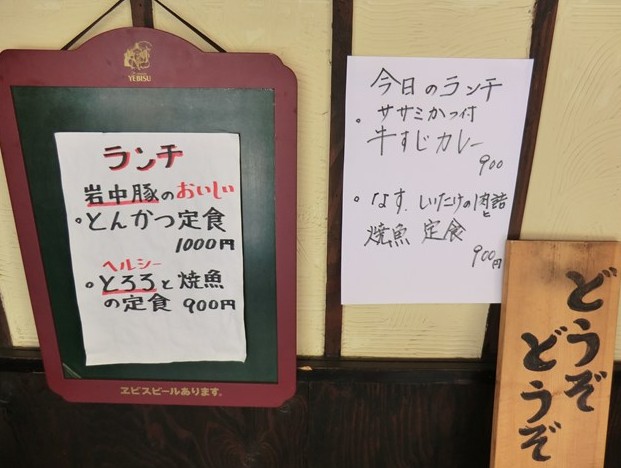 YEBISU
ランチ
岩中豚のおいしい
とんかつ定食
1000円
ヘルシー
とろろと焼魚
の定食 900円
ヱビスビールあります。
今日のランチ
ササミかつ付
牛すじカレー
900
なす、しいたけの肉詰と
焼魚 定食
900円
どうぞ
どうぞ